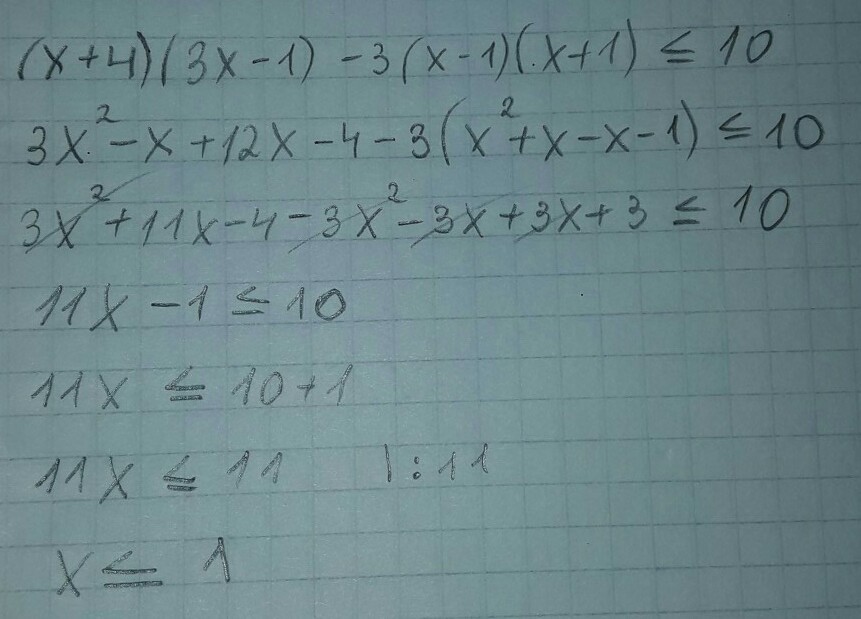 (x+4)(3x-1)-3(x-1)(x+1) ≤ 10
3x²-x+12x-4-3(x²+x-x-1) ≤ 10
3x²+11x-4-3x²-3x+3x+3 ≤ 10
11x-1 ≤ 10
11x ≤ 10+1
11x ≤ 11 |:11
x ≤ 1